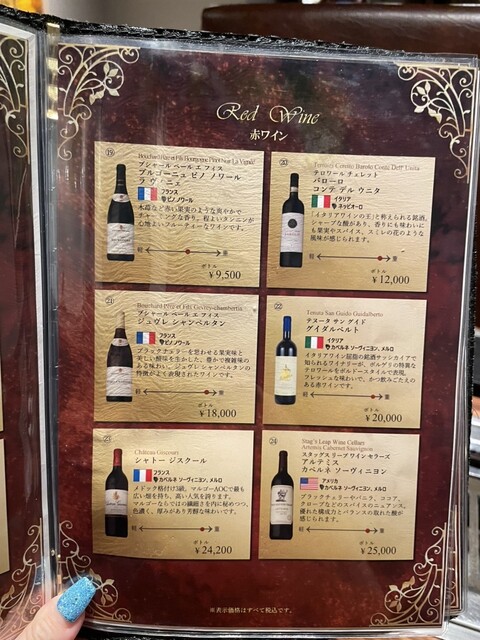 Red Wine
赤ワイン
⑲
Bouchard Père et Fils Bourgogne Pinot Noir La Vignée
ブシャール ペール エ フィス
ブルゴーニュ ピノ ノワール
ラ ヴィニェ
フランス
ピノ・ノワール
木苺など赤い果実のような爽やかで
チャーミングな香り。程よいタンニンが
心地よいフルーティーなワインです。
軽
重
ボトル
¥9,500
⑳
Terroirs Cerretto Barolo Conte Dell' Unita
テロワール チェレット
バローロ
コンテ デル ウニタ
イタリア
ネッビオーロ
「イタリアワインの王」と称えられる銘酒。
シャープな酸があり、香りにも味わいに
も果実やスパイス、スミレの花のような
風味が感じられます。
軽
重
ボトル
¥12,000
㉑
Bouchard Père et Fils Gevrey-chambertin
ブシャール ペール エ フィス
ジュヴレ シャンベルタン
フランス
ピノ・ノワール
ブラックチェリーを思わせる果実味と
美しい酸味を生かした、豊かで複雑味の
ある味わい。ジュヴレ シャンベルタンの
特徴がよく表現されたワインです。
軽
重
ボトル
¥18,000
㉒
Tenuta San Guido Guidalberto
テヌータ サン グイド
グイダルベルト
イタリア
カベルネ ソーヴィニヨン、メルロ
イタリアワイン屈指の銘酒サッシカイアで
知られるワイナリーが、ボルゲリの特異な
テロワールをボルドースタイルで表現。
フレッシュな味わいで、かつ飲みごたえの
ある赤ワインです。
軽
重
ボトル
¥20,000
㉓
Château Giscours
シャトー ジスクール
フランス
カベルネ ソーヴィニヨン、メルロ
メドック格付け3級。マルゴーAOCで最も
広い畑を持ち、高い人気を誇ります。
マルゴーならではの繊細さを内に秘めつつ、
色濃く、厚みがあり芳醇な味わいです。
軽
重
ボトル
¥24,200
㉔
Stag's Leap Wine Cellars
Artemis Cabernet Sauvignon
スタッグス リープ ワイン セラーズ
アルテミス
カベルネ ソーヴィニヨン
アメリカ
カベルネ ソーヴィニヨン、メルロ
ブラックチェリーやバニラ、ココア、
クローブなどのスパイスのニュアンス。
優れた構成力とバランスの取れた酸が
感じられます。
軽
重
ボトル
¥25,000
※表示価格はすべて税込です。